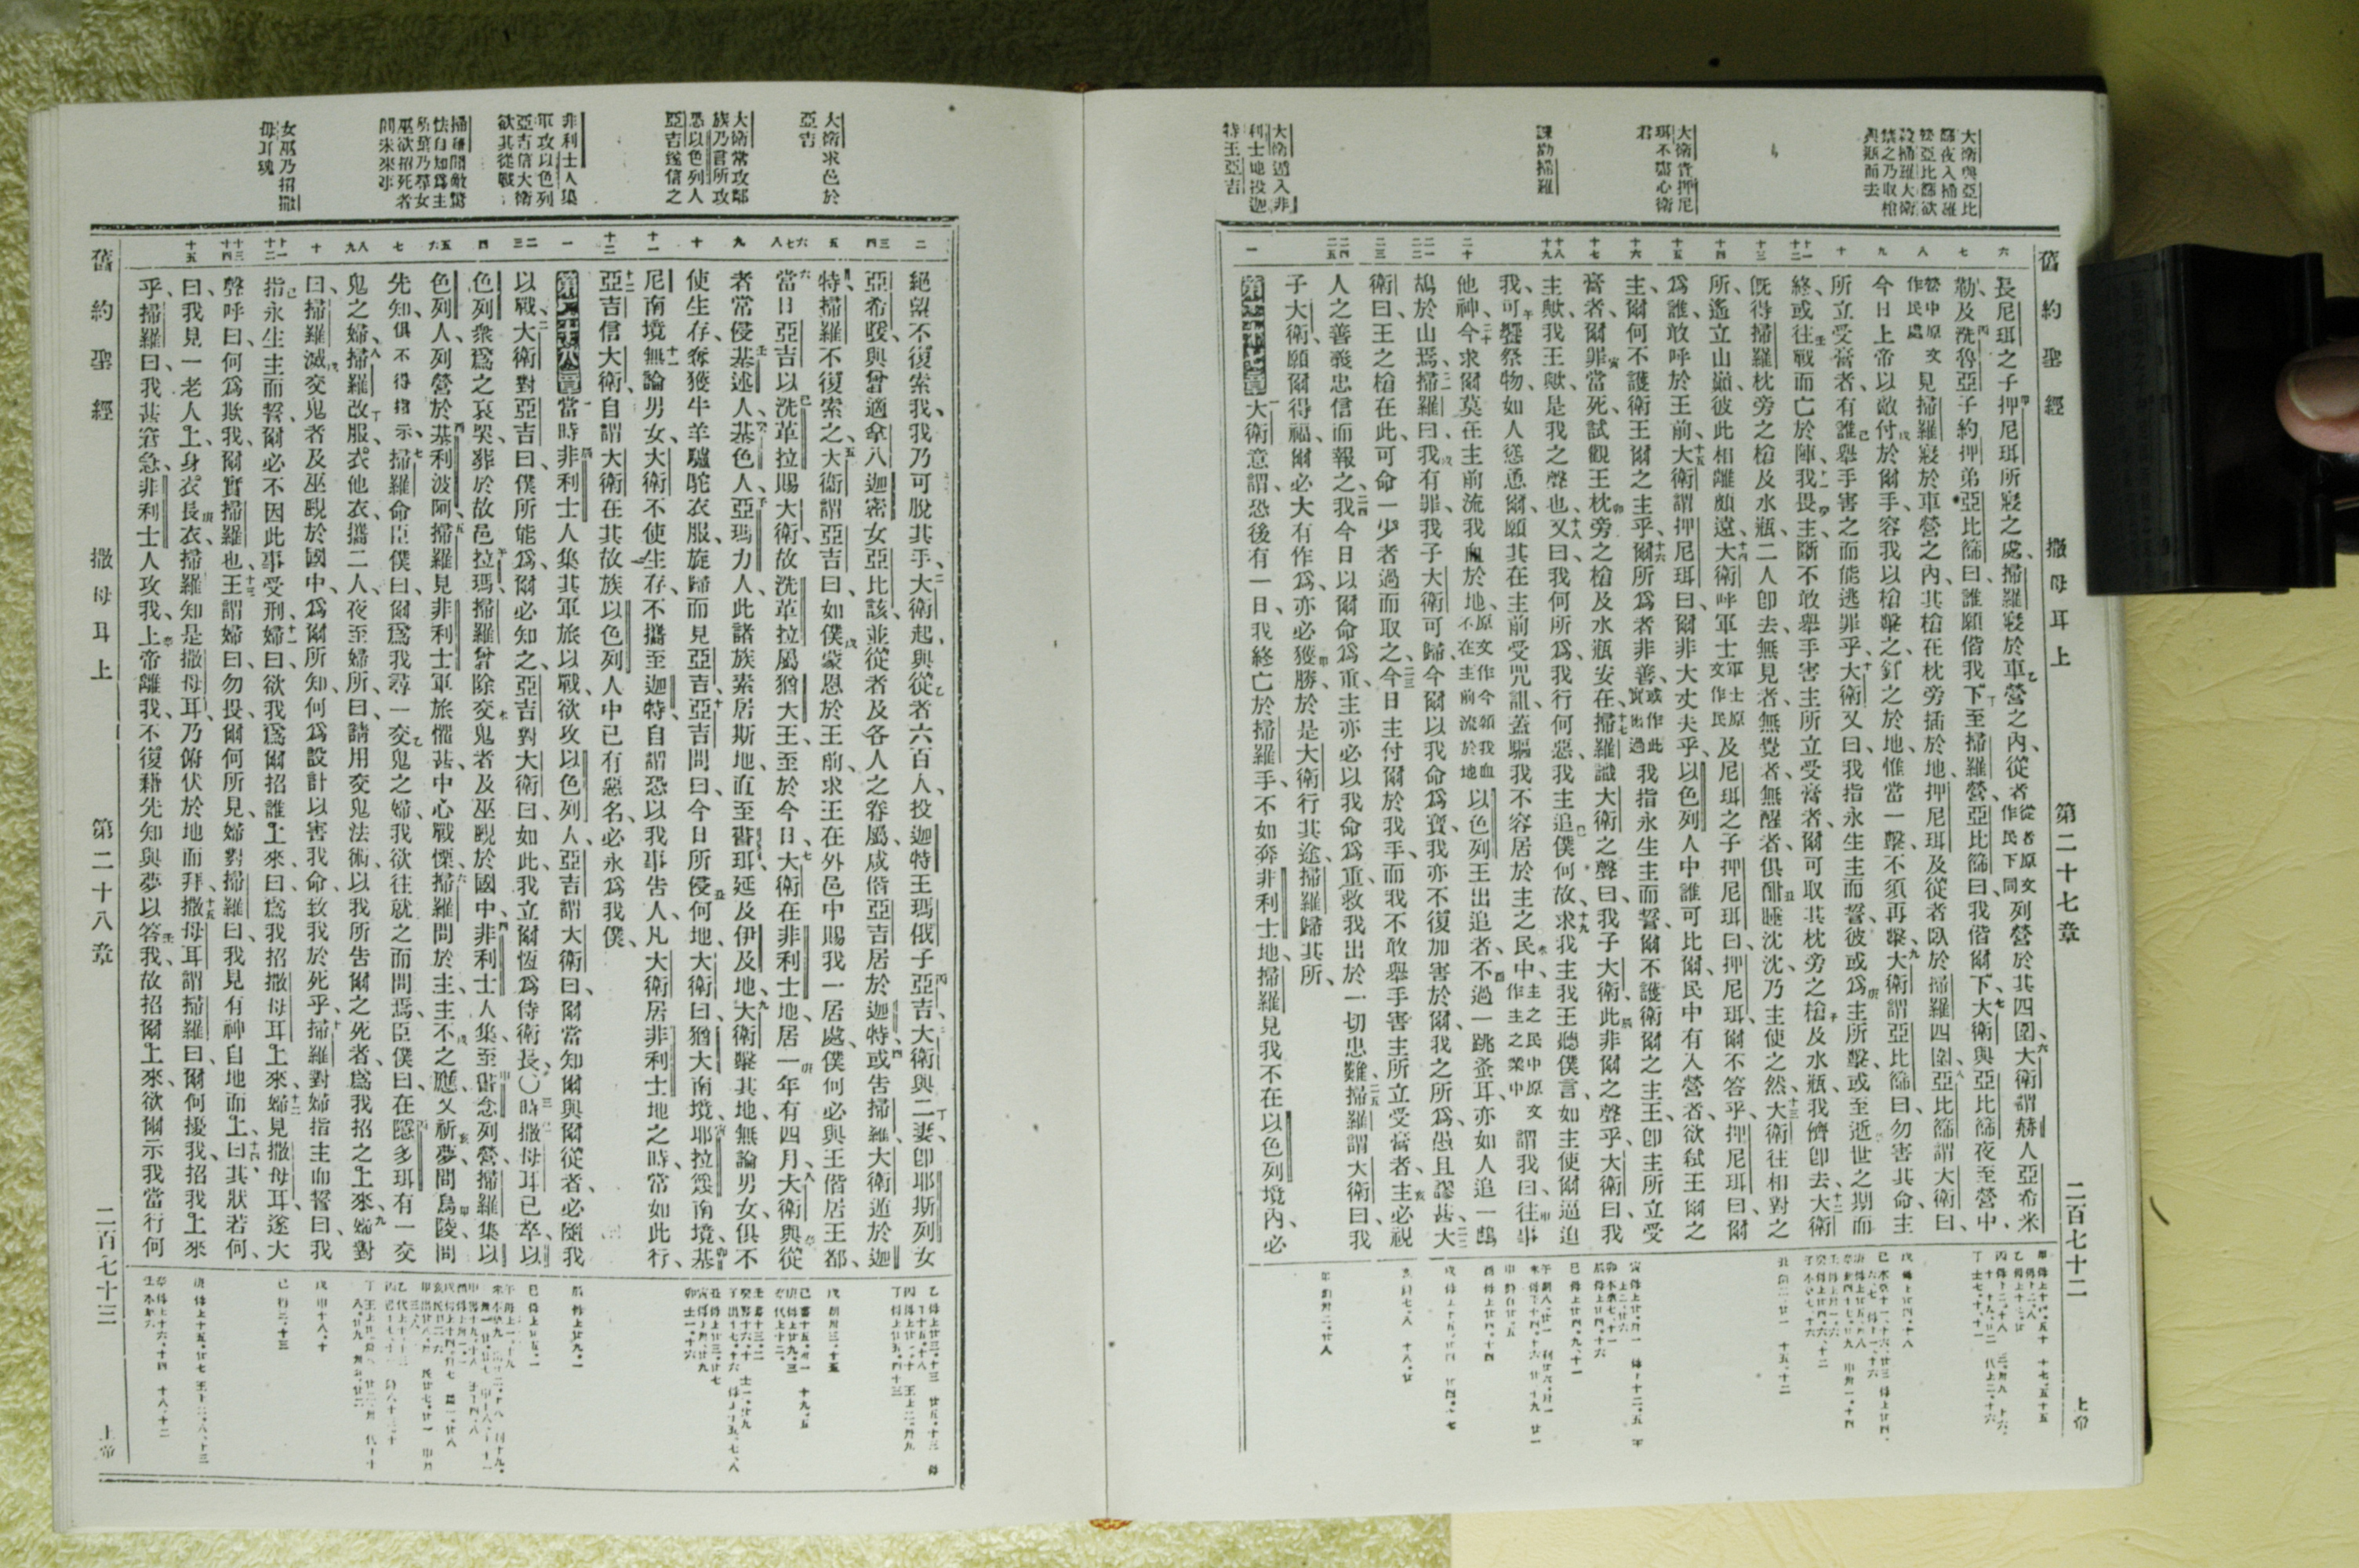 舊約聖經 撒母耳上 第二十七章 二百七十二 上帝
大衛與亞比
篩夜入掃羅
營亞比篩欲
殺掃羅大衛
禁之乃取槍
與瓶而去
大衛責押尼
珥不盡心衛
君
諫勸掃羅
大衛遁入非
利士地投迦
特王亞吉
六 七 八 九 十 十一 十二 十三 十四 十五 十六 十七 十八 十九 二十 二一 二二 二三 二四 二五 一
長尼珥之子押尼珥所寢之處、掃羅寢於車營之內、從者從者原文作民下同列營於其四圍、大衛謂赫人亞希米
勒及洗魯亞子約押弟亞比篩曰、誰願偕我下至掃羅營、亞比篩曰、我偕爾下、大衛與亞比篩夜至營中、
營中原文作民處見掃羅寢於車營之內、其槍在枕旁插於地、押尼珥及從者臥於掃羅四圍、亞比篩謂大衛曰、
今日上帝以敵付於爾手、容我以槍擊之、釘之於地、惟當一擊、不須再擊、大衛謂亞比篩曰、勿害其命、主
所立受膏者、有誰舉手害之而能逃罪乎、大衛又曰、我指永生主而誓、彼或爲主所擊、或至逝世之期而
終、或往戰而亡於陣、我畏主、斷不敢舉手害主所立受膏者、爾可取其枕旁之槍及水瓶、我儕卽去、大衛
旣得掃羅枕旁之槍及水瓶、二人卽去、無見者、無覺者、無醒者、俱酣睡沈沈、乃主使之然、大衛往相對之
所、遙立山巔、彼此相離頗遠、大衛呼軍士軍士原文作民及尼珥之子押尼珥曰、押尼珥、爾不答乎、押尼珥曰、爾
爲誰、敢呼於王前、大衛謂押尼珥曰、爾非大丈夫乎、以色列人中誰可比爾、民中有入營者、欲弒王爾之
主、爾何不護衛王爾之主乎、爾所爲者非善、或作此實出過我指永生主而誓、爾不護衛爾之主王、卽主所立受
膏者、爾罪當死、試觀王枕旁之槍及水瓶安在、掃羅識大衛之聲曰、我子大衛、此非爾之聲乎、大衛曰、我
主歟、我王歟、是我之聲也、又曰、我何所爲、我行何惡、我主追僕何故、求我主我王聽僕言、如主使爾逼迫
我、可饗祭物、如人慫恿爾、願其在主前受咒詛、蓋驅我不容居於主之民中、主之民中原文作主之業中謂我曰、往事
他神、今求爾莫在主前流我血於地、原文作今願我血不在主前流於地以色列王出追者、不過一跳蚤耳、亦如人追一鷓
鴣於山焉、掃羅曰、我有罪、我子大衛可歸、今爾以我命爲寶、我亦不復加害於爾、我之所爲、愚且謬甚、大
衛曰、王之槍在此、可命一少者過而取之、今日主付爾於我手、而我不敢舉手害主所立受膏者、主必視
人之善義忠信而報之、我今日以爾命爲重、主亦必以我命爲重、救我出於一切患難、掃羅謂大衛曰、我
子大衛、願爾得福、爾必大有作爲、亦必獲勝、於是大衛行其途、掃羅歸其所、
第二十七章 大衛意謂、恐後有一日、我終亡於掃羅手、不如奔非利士地、掃羅見我不在以色列境內、必
大衛求邑於
亞吉
大衛常攻鄰
族乃言所攻
悉以色列人
亞吉遂信之
非利士人集
軍攻以色列
亞吉信大衛
欲其從戰
掃羅聞敵驚
怯自知爲主
所棄乃尋女
巫欲招死者
問未來事
女巫乃招撒
母耳魂
二 三 四 五 六 七 八 九 十 十一 十二 一 二 三 四 五 六 七 八 九 十 十一 十二 十三 十四 十五
絕望不復索我、我乃可脫其手、大衛起、與從者六百人、投迦特王瑪俄子亞吉、大衛與二妻、卽耶斯列女
亞希暖、與曾適拿八迦密女亞比該、並從者及各人之眷屬、咸偕亞吉居於迦特、或告掃羅、大衛遁於迦
特、掃羅不復索之、大衛謂亞吉曰、如僕蒙恩於王前、求王在外邑中賜我一居處、僕何必與王偕居王都、
當日亞吉以洗革拉賜大衛、故洗革拉屬猶大王、至於今日、大衛在非利士地居一年有四月、大衛與從
者常侵基述人、基色人、亞瑪力人、此諸族素居斯地、直至書珥、延及伊及地、大衛擊其地、無論男女、俱不
使生存、奪獲牛羊驢駝衣服、旋歸而見亞吉、亞吉問曰、今日所侵何地、大衛曰、猶大南境、耶拉篾南境、基
尼南境、無論男女、大衛不使生存、不攜至迦特、自謂恐以我事告人、凡大衛居非利士地之時、常如此行、
亞吉信大衛、自謂大衛在其故族以色列人中已有惡名、必永爲我僕、
第二十八章 當時非利士人集其軍旅以戰、欲攻以色列人、亞吉謂大衛曰、爾當知爾與爾從者、必隨我
以戰、大衛對亞吉曰、僕所能爲、爾必知之、亞吉對大衛曰、如此、我立爾恆爲侍衛長、○時撒母耳已卒、以
色列衆爲之哀哭、葬於故邑拉瑪、掃羅曾除交鬼者及巫覡於國中、非利士人集、至書念列營、掃羅集以
色列人列營於基利波阿、掃羅見非利士軍旅、懼甚、中心戰慄、掃羅問於主、主不之應、又祈夢問烏陵問
先知、俱不得指示、掃羅命臣僕曰、爾爲我尋一交鬼之婦、我欲往就之而問焉、臣僕曰、在隱多珥有一交
鬼之婦、掃羅改服、衣他衣、攜二人、夜至婦所、曰、請用交鬼法術、以我所告爾之死者、爲我招之上來、婦對
曰、掃羅滅交鬼者及巫覡於國中、爲爾所知、何爲設計以害我命、致我於死乎、掃羅對婦指主而誓曰、我
指永生主而誓、爾必不因此事受刑、婦曰、欲我爲爾招誰上來、曰、爲我招撒母耳上來、婦見撒母耳、遂大
聲呼曰、何爲欺我、爾實掃羅也、王謂婦曰、勿畏、爾何所見、婦對掃羅曰、我見有神自地而上、曰、其狀若何、
曰、我見一老人上、身衣長衣、掃羅知是撒母耳、乃俯伏於地而拜、撒母耳謂掃羅曰、爾何擾我、招我上來
乎、掃羅曰、我甚窘急、非利士人攻我、上帝離我、不復藉先知與夢以答我、故招爾上來、欲爾示我當行何
舊約聖經 撒母耳上 第二十八章 二百七十三 上帝